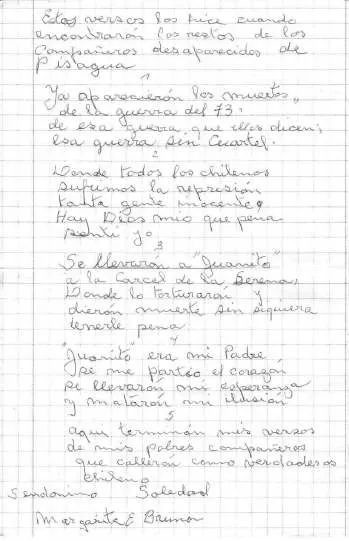 Estos versos los hice cuando
encontrarón los restos de los
Compañeros desaparecidos de
Pisagua
1
Ya aparecierón los muertos,
de la guerra del 73.
de esa guerra que ellos dicen,
esa guerra sin Cuartel.
2
Donde todos los chilenos
sufrimos la represión
tanta gente inocente,
Hay Dios mio que pena
senti yo
3
Se llevarón a "Juanito"
a la Carcel de la Serena,
Donde lo torturaron y
dierón muerte sin siquiera
tenerle pena
4
"Juanito" era mi Padre
se me partio el corazón
se llevarón mi esperanza
y matarón mi ilusión
5
aqui terminán mis versos
de mis pobres compañeros
que calleron como verdaderos
chileno
Seudonimo Soledad
Margarita E